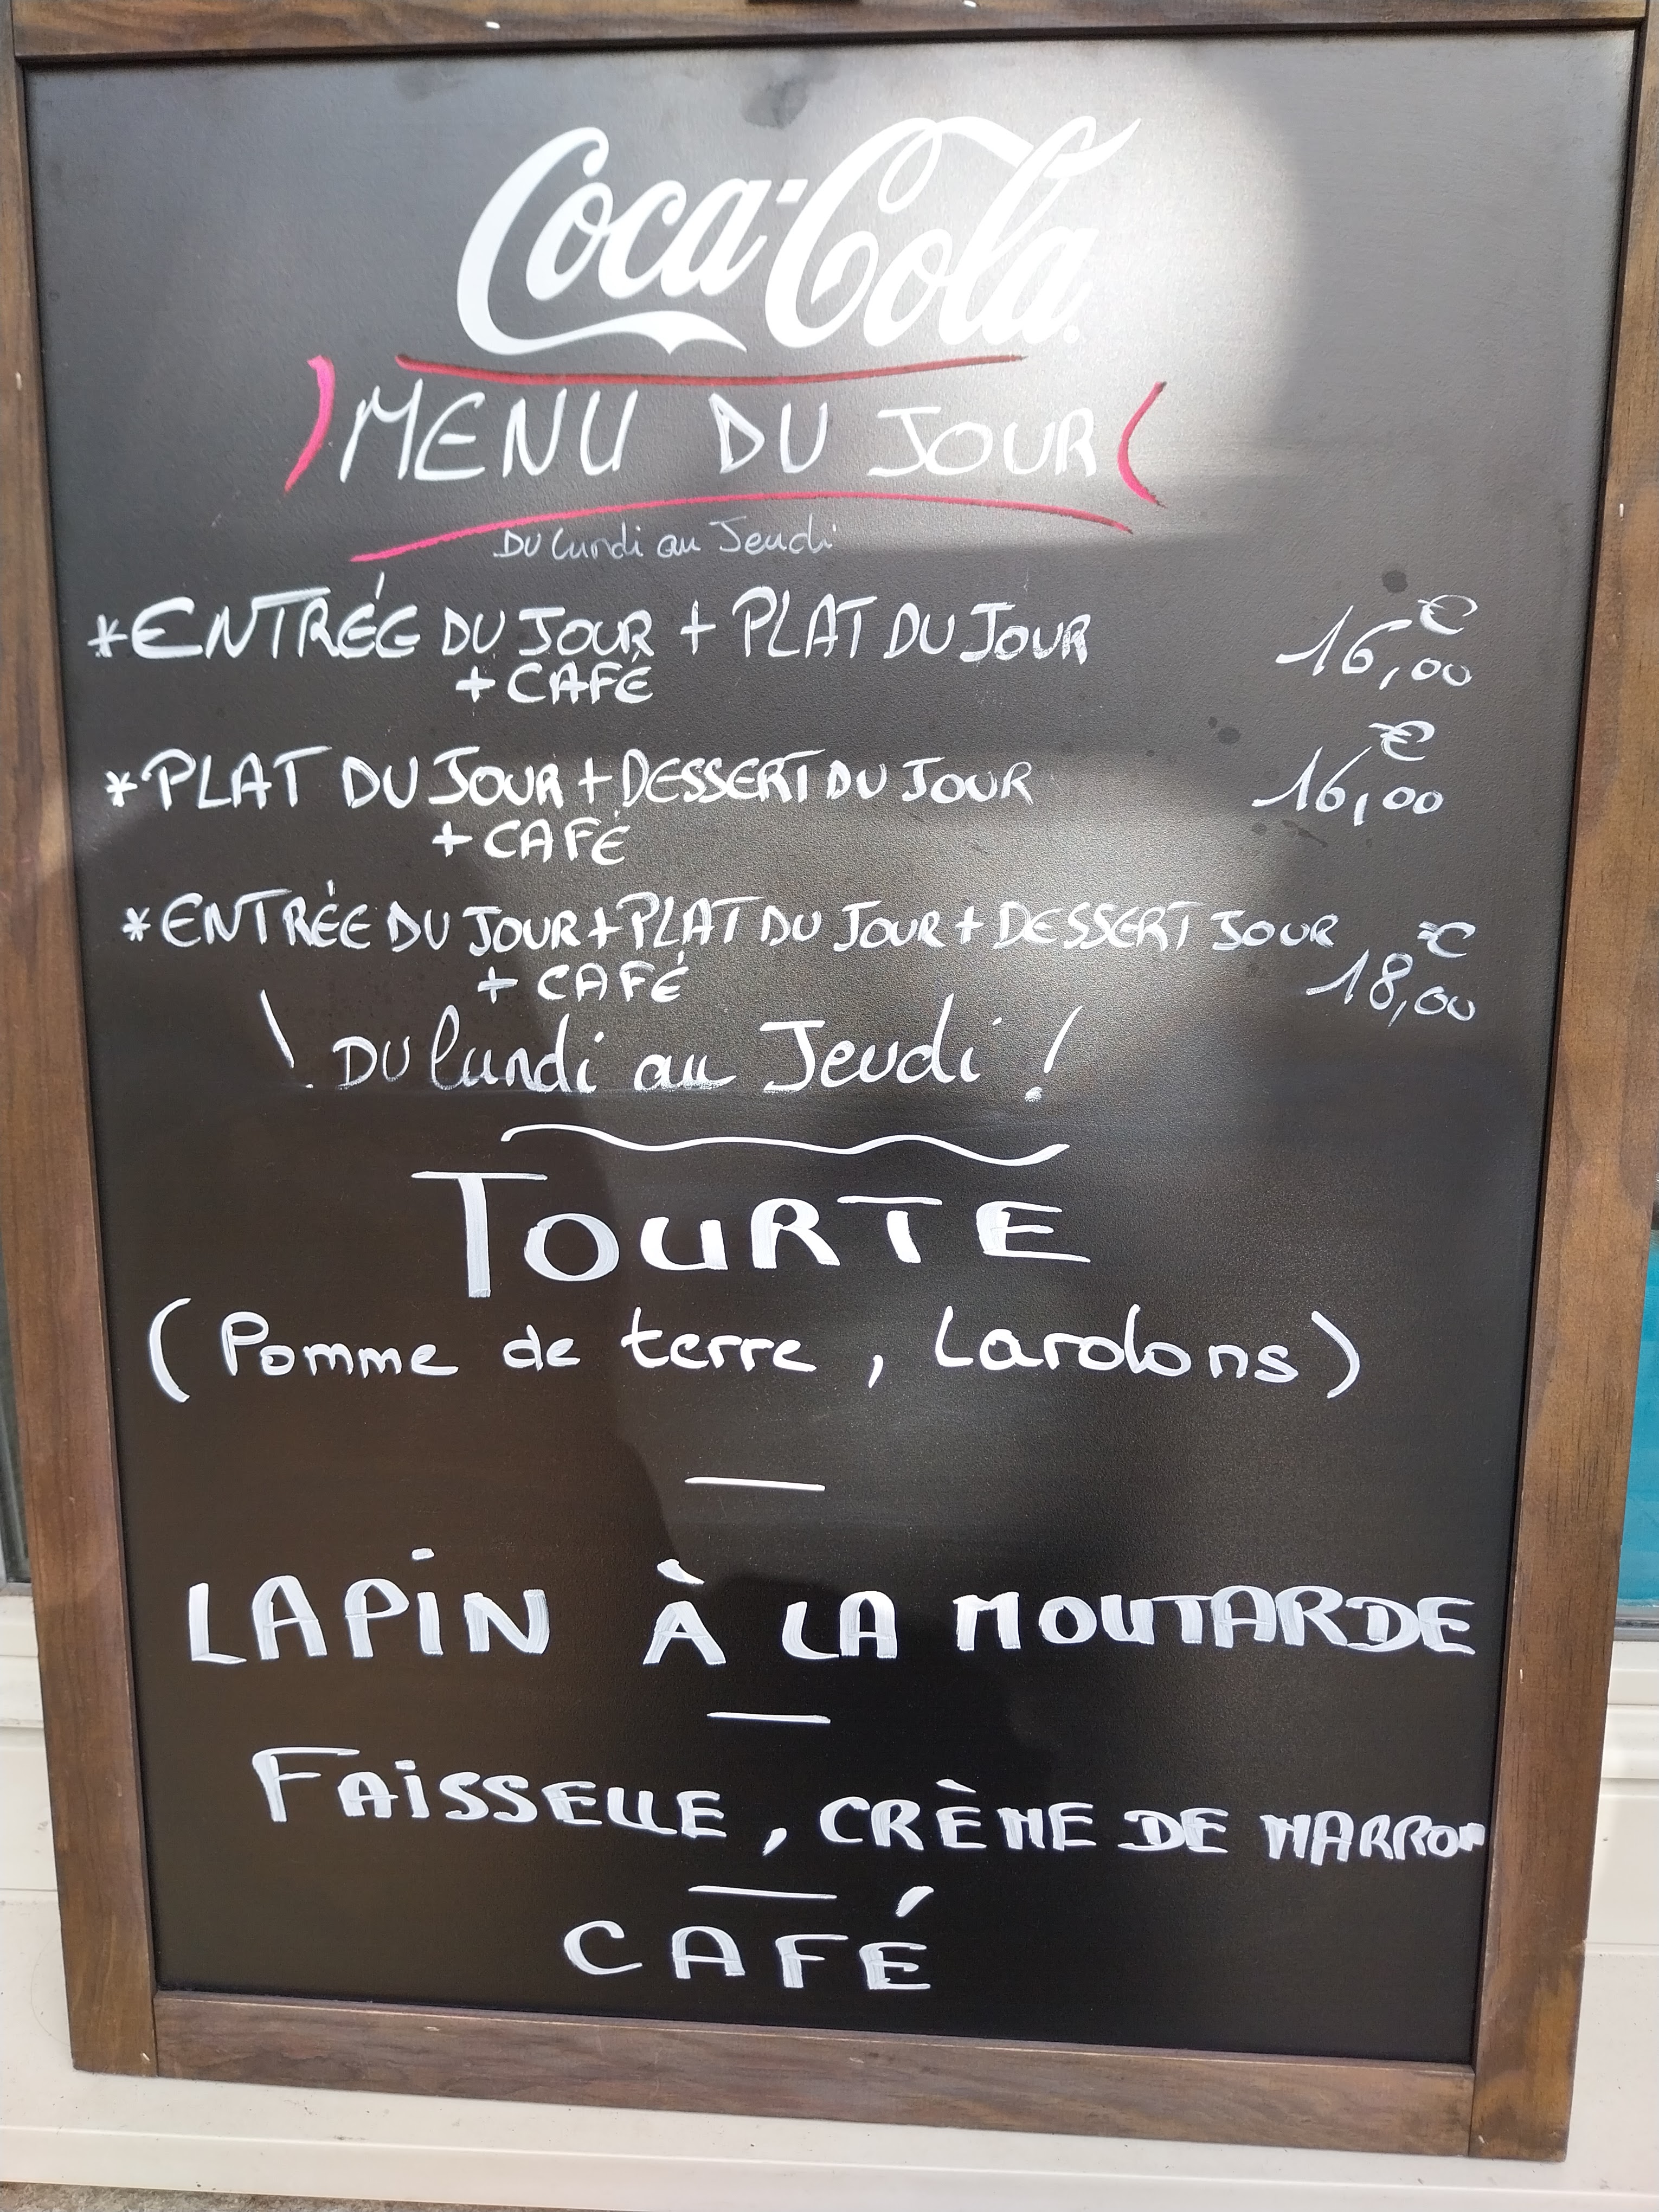 Coca-Cola
MENU DU JOUR
DU lundi au Jeudi
*ENTRÉE DU JOUR + PLAT DU JOUR 16,00€
+ CAFÉ
*PLAT DU JOUR + DESSERT DU JOUR 16,00€
+ CAFÉ
*ENTRÉE DU JOUR + PLAT DU JOUR + DESSERT JOUR 18,00€
+ CAFÉ
! DU lundi au Jeudi !
TOURTE
(Pomme de terre, Lardons)
LAPIN À LA MOUTARDE
FAISSELLE, CRÈME DE MARRON
CAFÉ